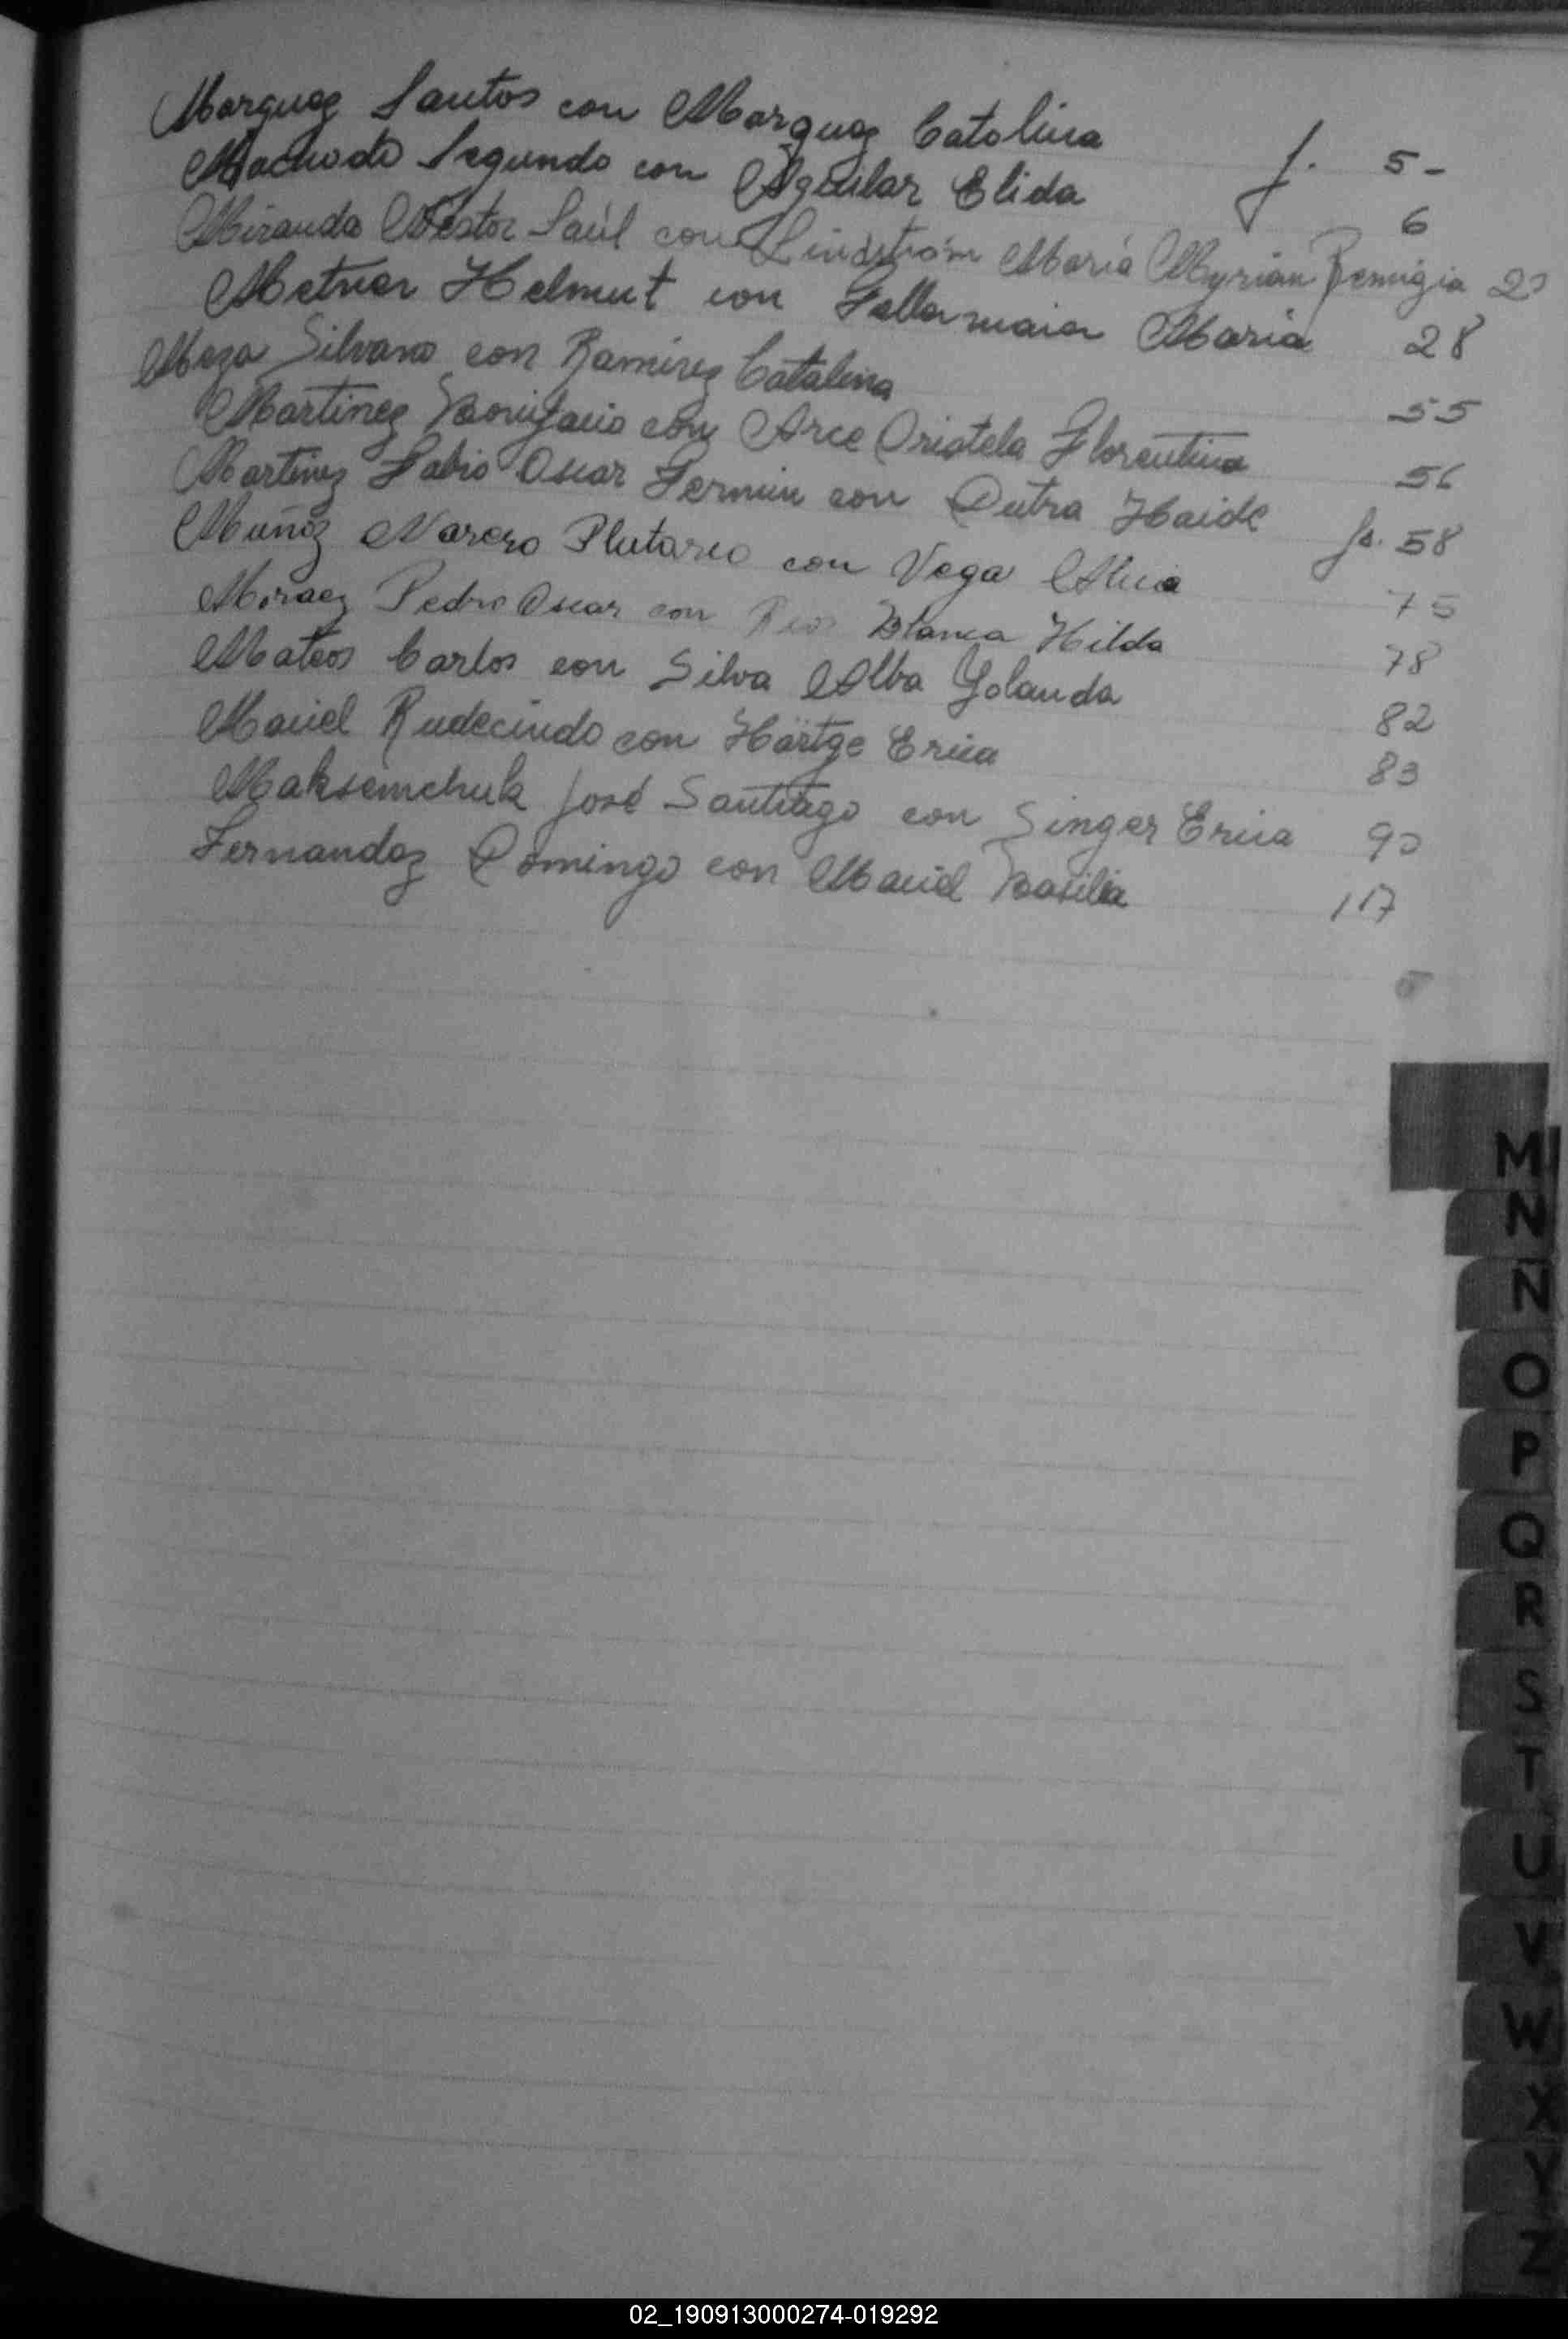 Marquez Santos con Marquez Catalina f. 5-
Machado Segundo con Aguilar Elida 6
Miranda Néstor Saúl con Lindström María Myrian Remigia 20
Metner Helmut con Fallermaier Maria 28
Meza Silvano con Ramirez Catalina 55
Martinez Bonifacio con Arce Oristela Florentina 56
Martinez Fabio Oscar Fermin con Dutra Haide fs. 58
Muñoz Narcizo Plutarco con Vega Alicia 75
Moraez Pedro Oscar con Rios Blanca Hilda 78
Mateos Carlos con Silva Alba Yolanda 82
Maciel Rudecindo con Hartge Erica 83
Maksemchuk José Santiago con Singer Erica 90
Fernandez Domingo con Maciel Basilia 117
M
N
N
O
P
Q
R
S
T
U
V
W
X
Y
Z
02_190913000274-019292